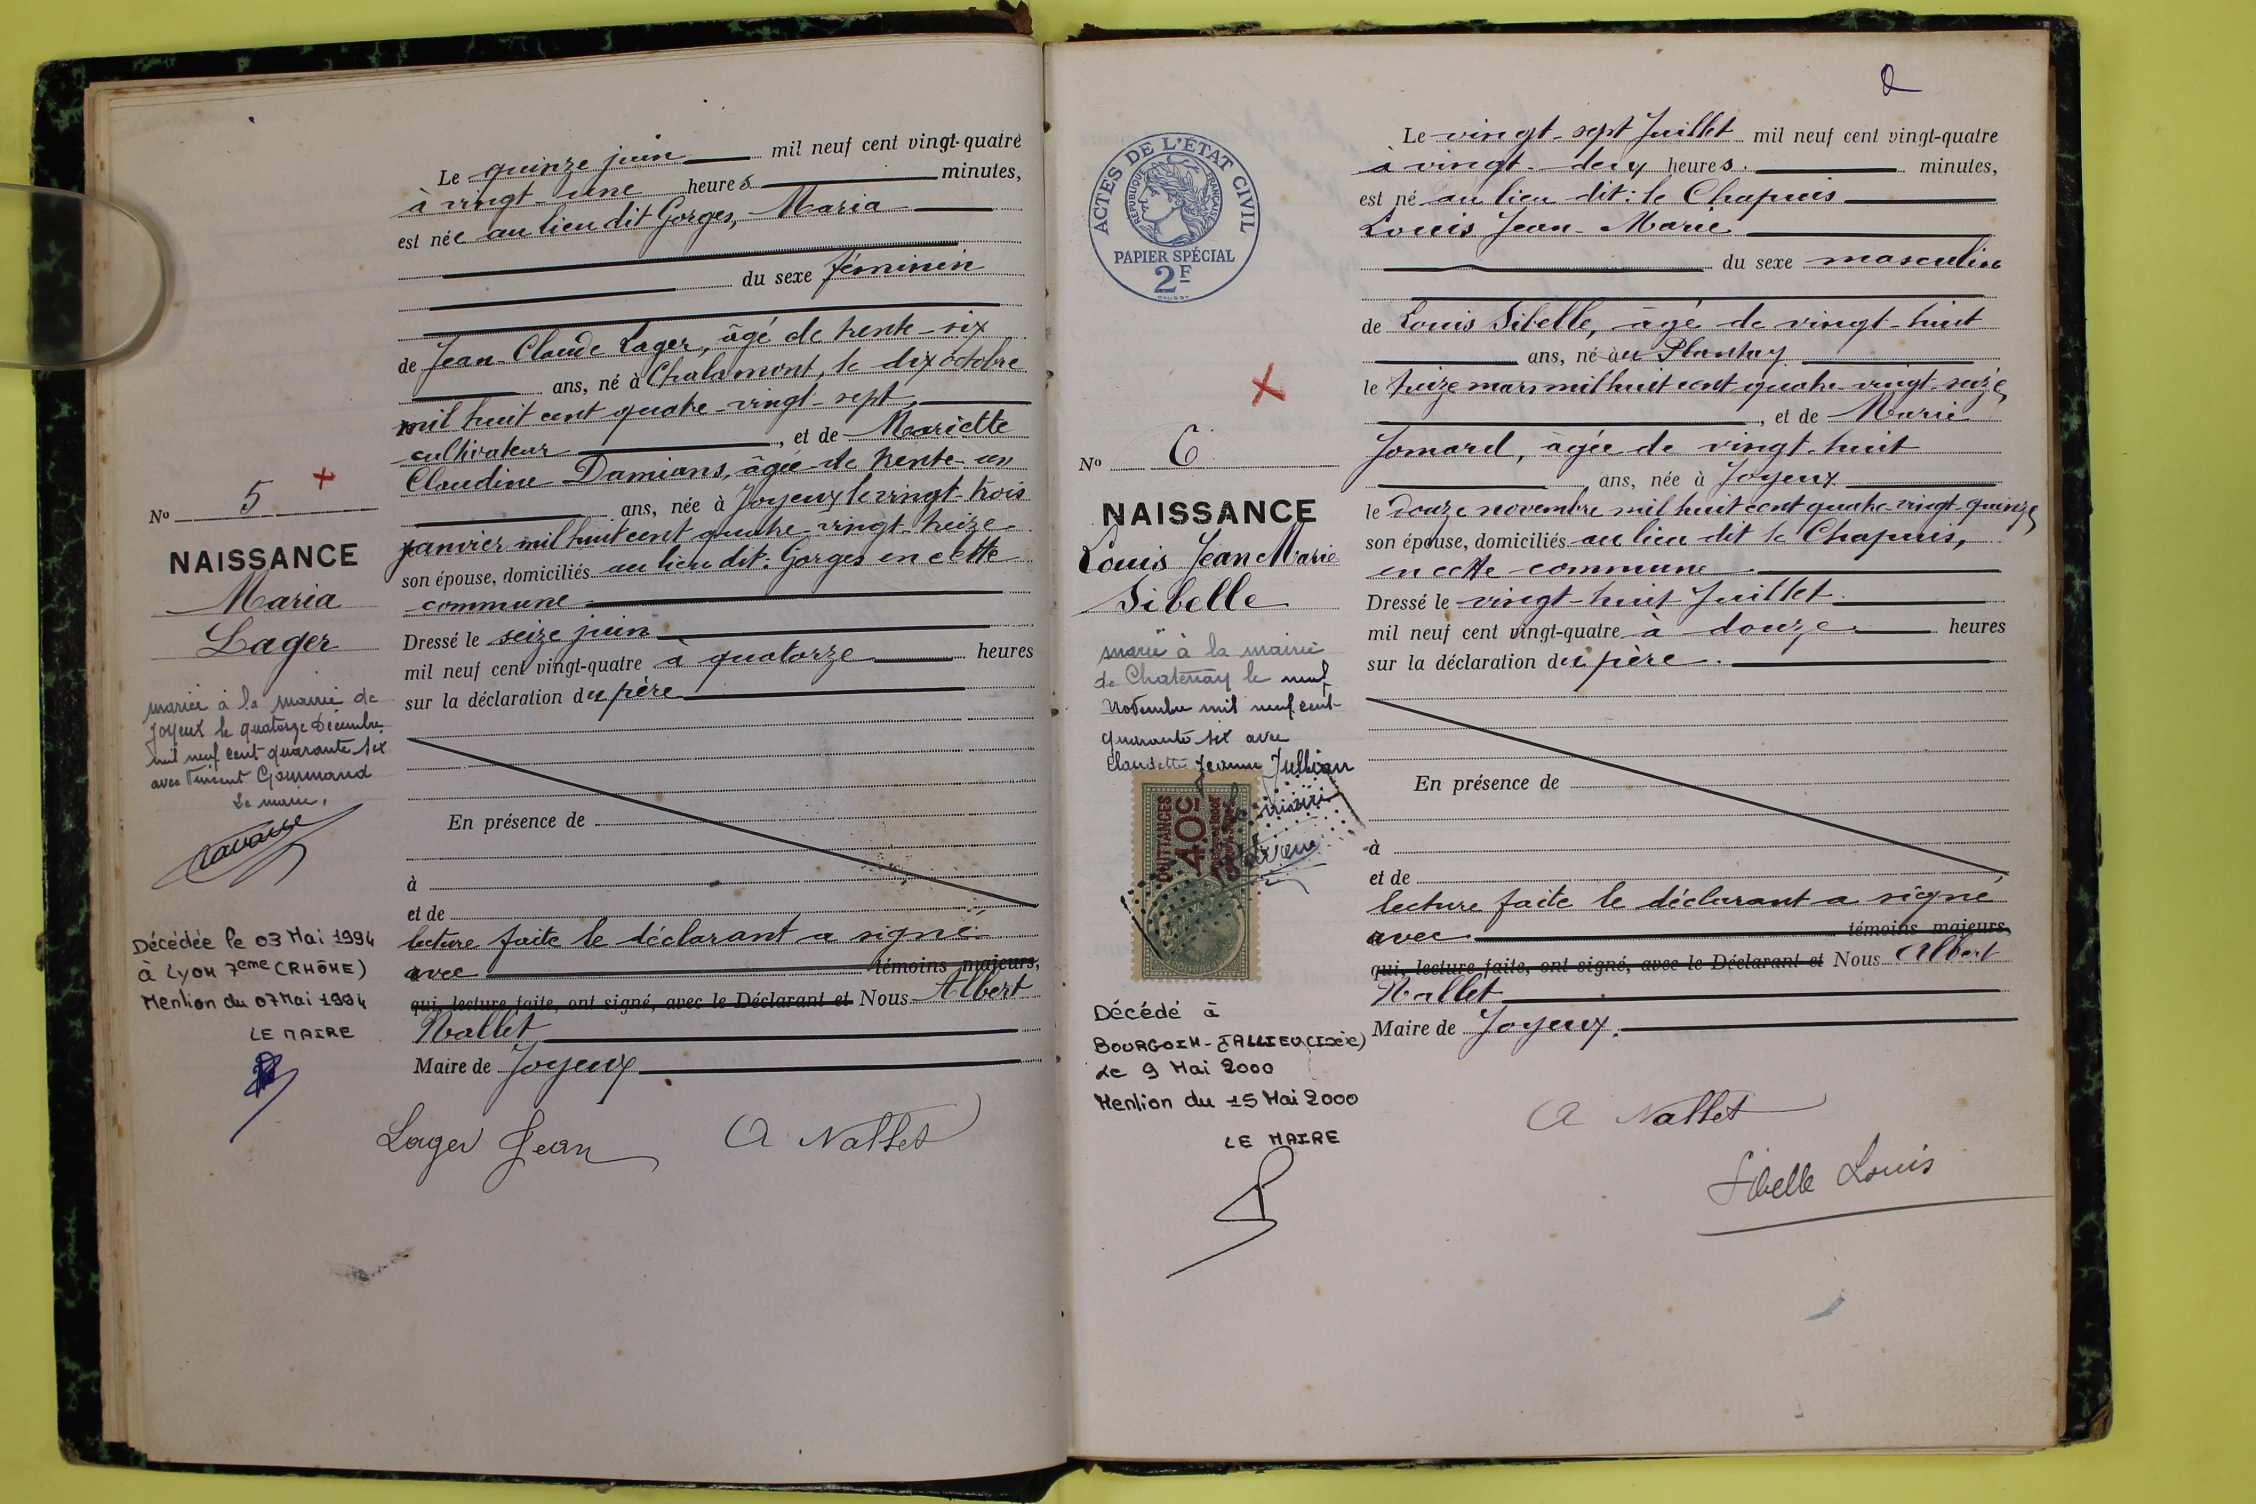 Le quinze juin mil neuf cent vingt-quatre
à vingt-une heures minutes,
est née au lieu dit Gorges, Maria
du sexe féminin
de Jean-Claude Lager, âgé de trente-six
ans, né à Chalamont, le dix octobre
mil huit cent quatre-vingt-sept,
cultivateur, et de Mariette
Claudine Damians, âgée de trente-un
ans, née à Joyeux le vingt-trois
janvier mil huit cent quatre-vingt-treize
son épouse, domiciliés au lieu dit: Gorges en cette
commune
Dressé le seize juin
mil neuf cent vingt-quatre à quatorze heures
sur la déclaration du père
En présence de
à
et de
lecture faite le déclarant a signé
avec témoins majeurs,
qui, lecture faite, ont signé, avec le Déclarant et Nous Albert
Nallet
Maire de Joyeux
Lager Jean A Nallet
No 5 +
NAISSANCE
Maria
Lager
mariée à la mairie de
Joyeux le quatorze Décembre
mil neuf cent quarante six
avec Vincent Gourmand
Le maire,
Décédée le 03 Mai 1994
à Lyon 7eme (RHÔNE)
Mention du 07 Mai 1994
LE MAIRE
2
ACTES DE L'ETAT CIVIL
REPUBLIQUE FRANÇAISE
PAPIER SPÉCIAL
2F
X
No 6
NAISSANCE
Louis Jean Marie
Sibelle
marié à la mairie
de Chatenay le neuf
Novembre mil neuf cent
quarante six avec
Claudette Jeanne Jullian
QUITTANCES
40c
Décédé à
BOURGOIN-JALLIEU (Isère)
Le 9 Mai 2000
Mention du 15 Mai 2000
LE MAIRE
Le vingt-sept Juillet mil neuf cent vingt-quatre
à vingt-deux heures minutes,
est né au lieu dit: le Chapuis
Louis Jean-Marie
du sexe masculin
de Louis Sibelle, âgé de vingt-huit
ans, né au Plantay
le treize mars mil huit cent quatre-vingt-seize
, et de Marie
Jomard, âgée de vingt-huit
ans, née à Joyeux
le douze novembre mil huit cent quatre-vingt-quinze,
son épouse, domiciliés au lieu dit le Chapuis,
en cette commune
Dressé le vingt-huit Juillet
mil neuf cent vingt-quatre à douze heures
sur la déclaration du père.
En présence de
à
et de
lecture faite le déclarant a signé
avec témoins majeurs,
qui, lecture faite, ont signé, avec le Déclarant et Nous Albert
Nallet
Maire de Joyeux.
A Nallet
Sibelle Louis